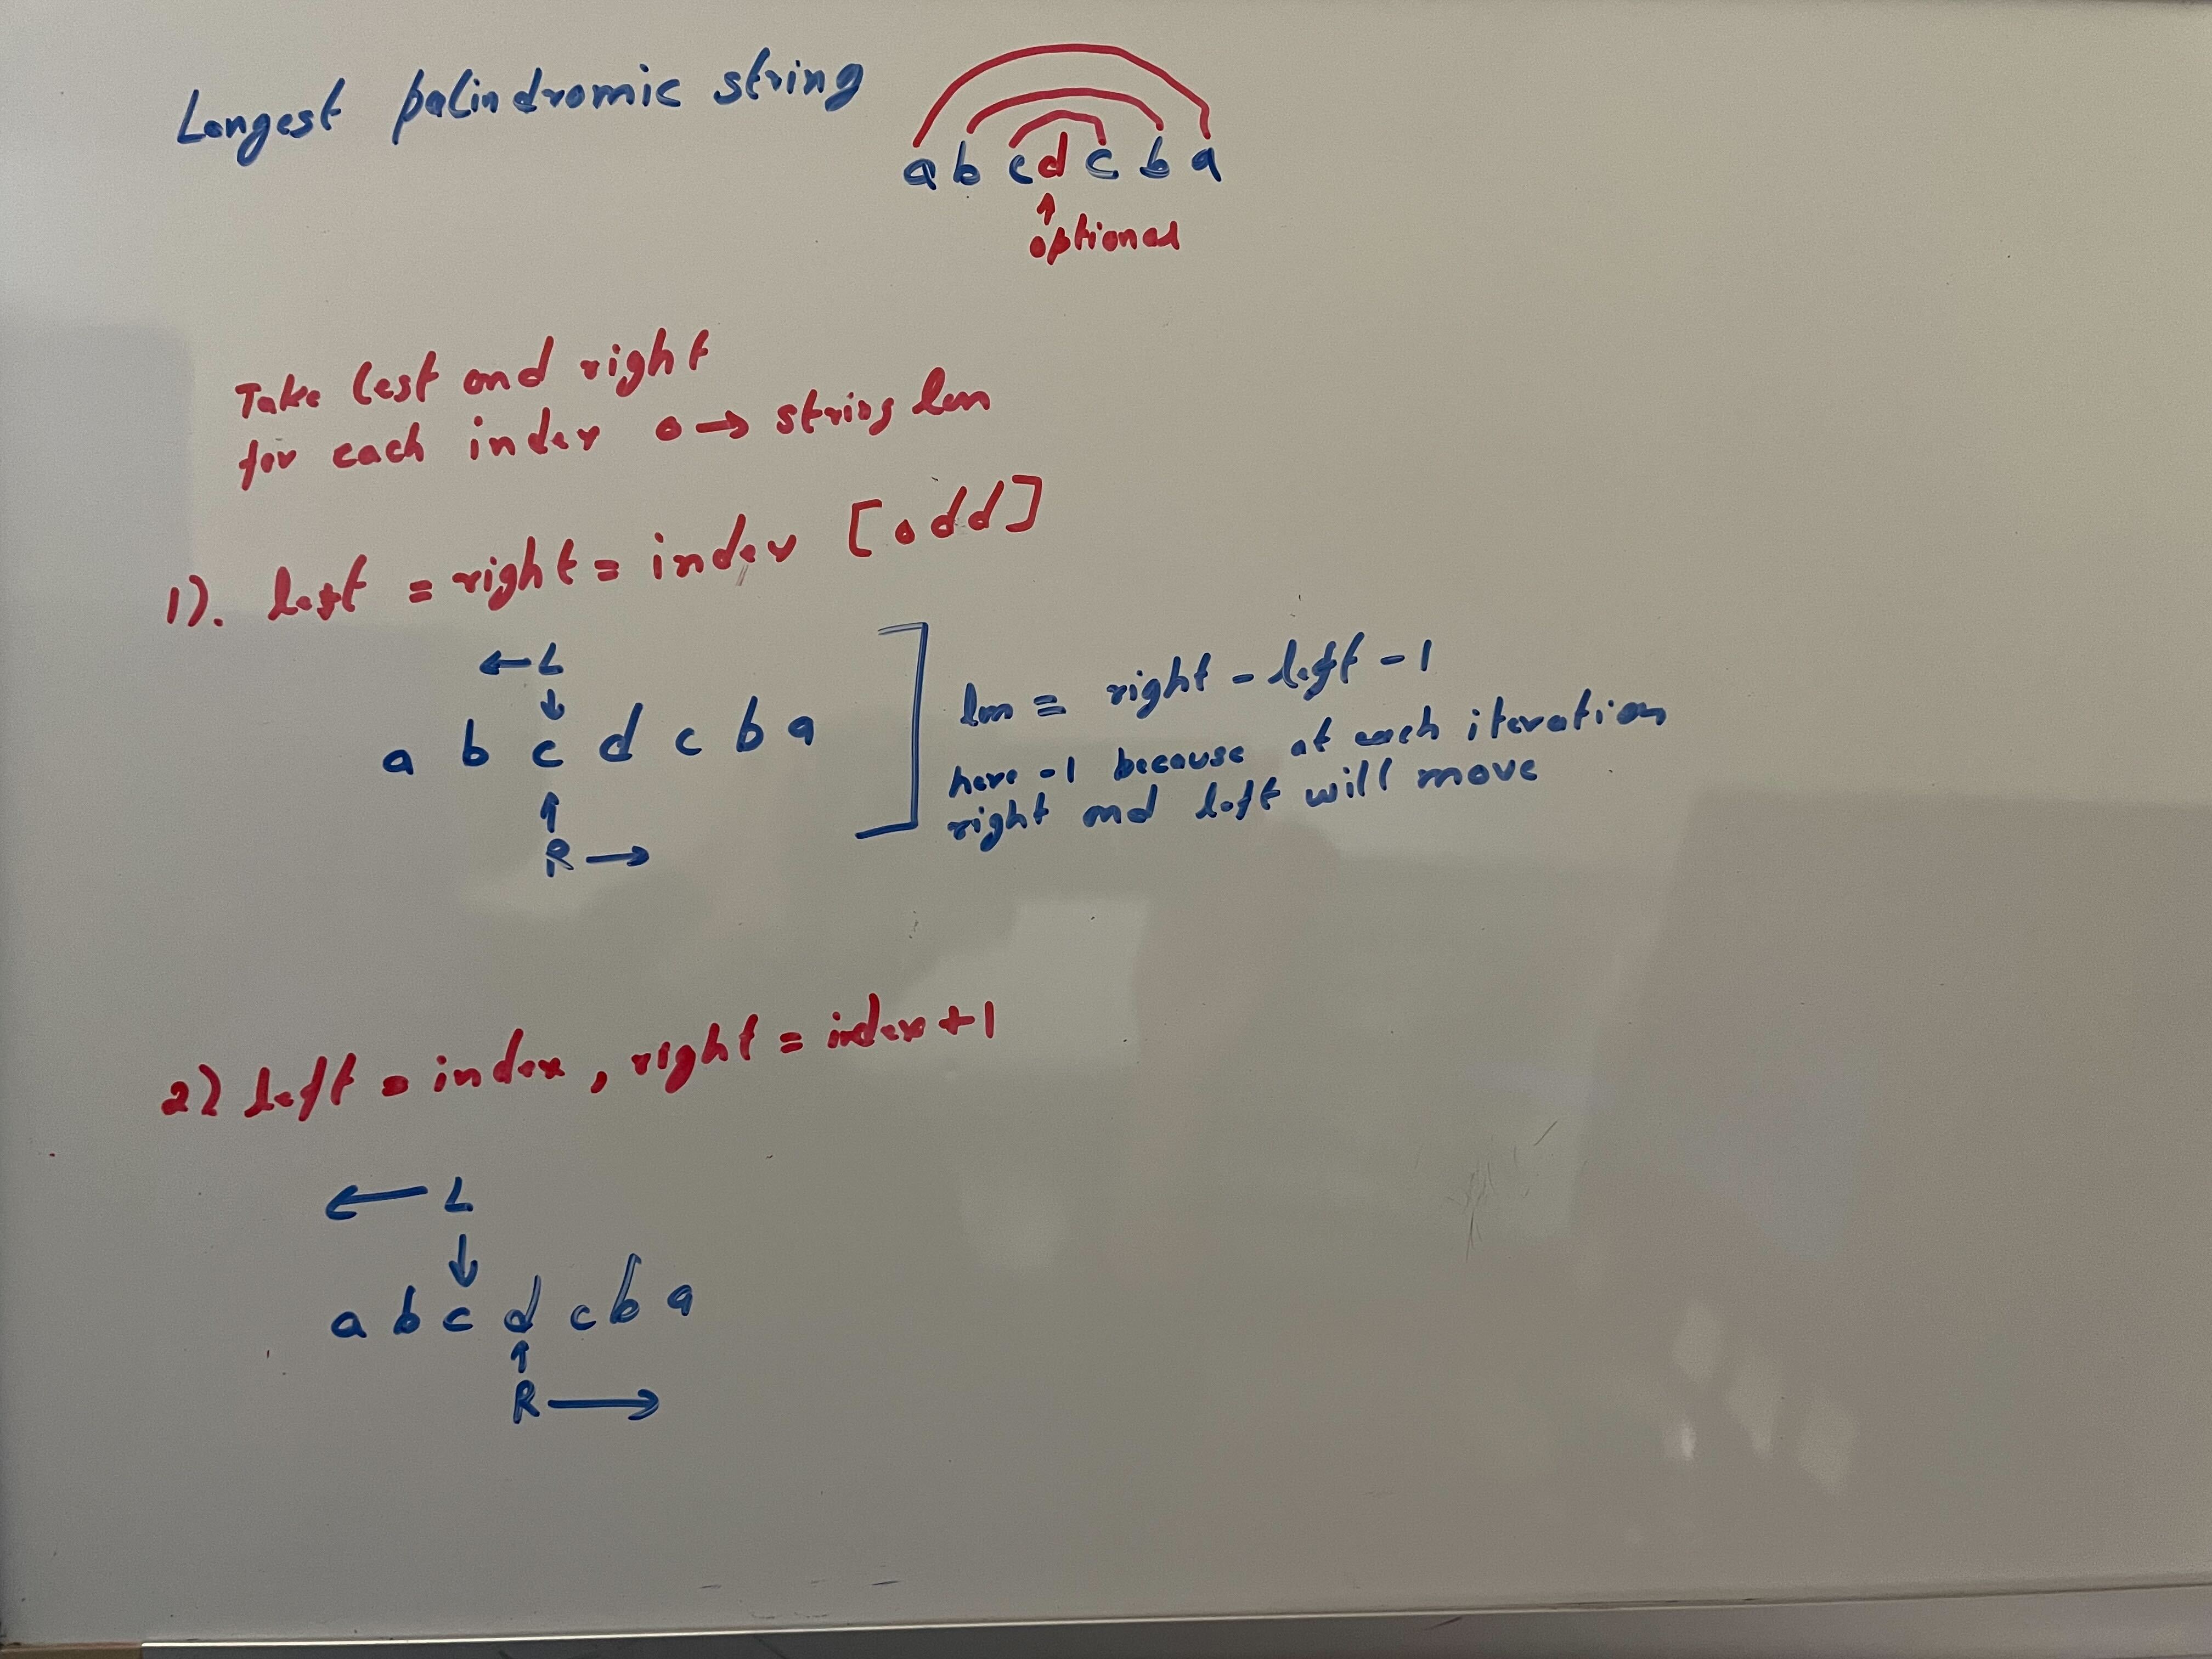 Longest palindromic string
a b c d c b a
↑
optional
Take left and right
for each index 0 → string len
1). left = right = index [odd]
← L
↓
a b c d c b a
↑
R →
len = right - left - 1
here -1 because at each iteration
right and left will move
2) left = index, right = index + 1
← L
↓
a b c d c b a
↑
R →